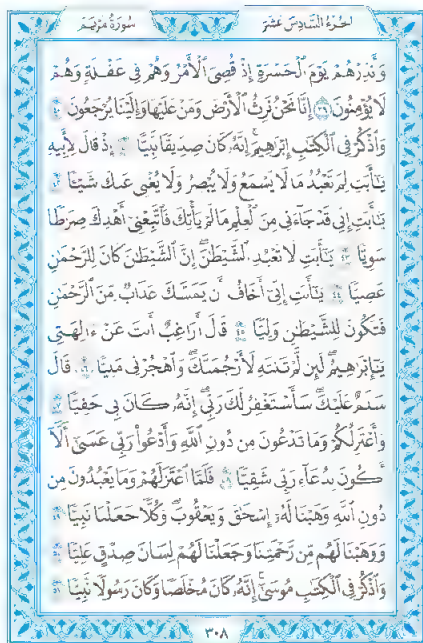 الجزء السادس عشر
سورة مريم
وَأَنذِرْهُمْ يَوْمَ ٱلْحَسْرَةِ إِذْ قُضِىَ ٱلْأَمْرُ وَهُمْ فِى غَفْلَةٍ وَهُمْ
لَا يُؤْمِنُونَ ٣٩ إِنَّا نَحْنُ نَرِثُ ٱلْأَرْضَ وَمَنْ عَلَيْهَا وَإِلَيْنَا يُرْجَعُونَ ٤٠
وَٱذْكُرْ فِى ٱلْكِتَٰبِ إِبْرَٰهِيمَ إِنَّهُۥ كَانَ صِدِّيقًا نَّبِيًّا ٤١ إِذْ قَالَ لِأَبِيهِ
يَٰٓأَبَتِ لِمَ تَعْبُدُ مَا لَا يَسْمَعُ وَلَا يُبْصِرُ وَلَا يُغْنِى عَنكَ شَيْـًٔا ٤٢
يَٰٓأَبَتِ إِنِّى قَدْ جَآءَنِى مِنَ ٱلْعِلْمِ مَا لَمْ يَأْتِكَ فَٱتَّبِعْنِىٓ أَهْدِكَ صِرَٰطًا
سَوِيًّا ٤٣ يَٰٓأَبَتِ لَا تَعْبُدِ ٱلشَّيْطَٰنَ إِنَّ ٱلشَّيْطَٰنَ كَانَ لِلرَّحْمَٰنِ
عَصِيًّا ٤٤ يَٰٓأَبَتِ إِنِّىٓ أَخَافُ أَن يَمَسَّكَ عَذَابٌ مِّنَ ٱلرَّحْمَٰنِ
فَتَكُونَ لِلشَّيْطَٰنِ وَلِيًّا ٤٥ قَالَ أَرَاغِبٌ أَنتَ عَنْ ءَالِهَتِى
يَٰٓإِبْرَٰهِيمُ لَئِن لَّمْ تَنتَهِ لَأَرْجُمَنَّكَ وَٱهْجُرْنِى مَلِيًّا ٤٦ قَالَ
سَلَٰمٌ عَلَيْكَ سَأَسْتَغْفِرُ لَكَ رَبِّىٓ إِنَّهُۥ كَانَ بِى حَفِيًّا ٤٧
وَأَعْتَزِلُكُمْ وَمَا تَدْعُونَ مِن دُونِ ٱللَّهِ وَأَدْعُوا۟ رَبِّى عَسَىٰٓ أَلَّآ
أَكُونَ بِدُعَآءِ رَبِّى شَقِيًّا ٤٨ فَلَمَّا ٱعْتَزَلَهُمْ وَمَا يَعْبُدُونَ مِن
دُونِ ٱللَّهِ وَهَبْنَا لَهُۥٓ إِسْحَٰقَ وَيَعْقُوبَ وَكُلًّا جَعَلْنَا نَبِيًّا ٤٩
وَوَهَبْنَا لَهُم مِّن رَّحْمَتِنَا وَجَعَلْنَا لَهُمْ لِسَانَ صِدْقٍ عَلِيًّا ٥٠
وَٱذْكُرْ فِى ٱلْكِتَٰبِ مُوسَىٰٓ إِنَّهُۥ كَانَ مُخْلَصًا وَكَانَ رَسُولًا نَّبِيًّا ٥١
٣٠٨